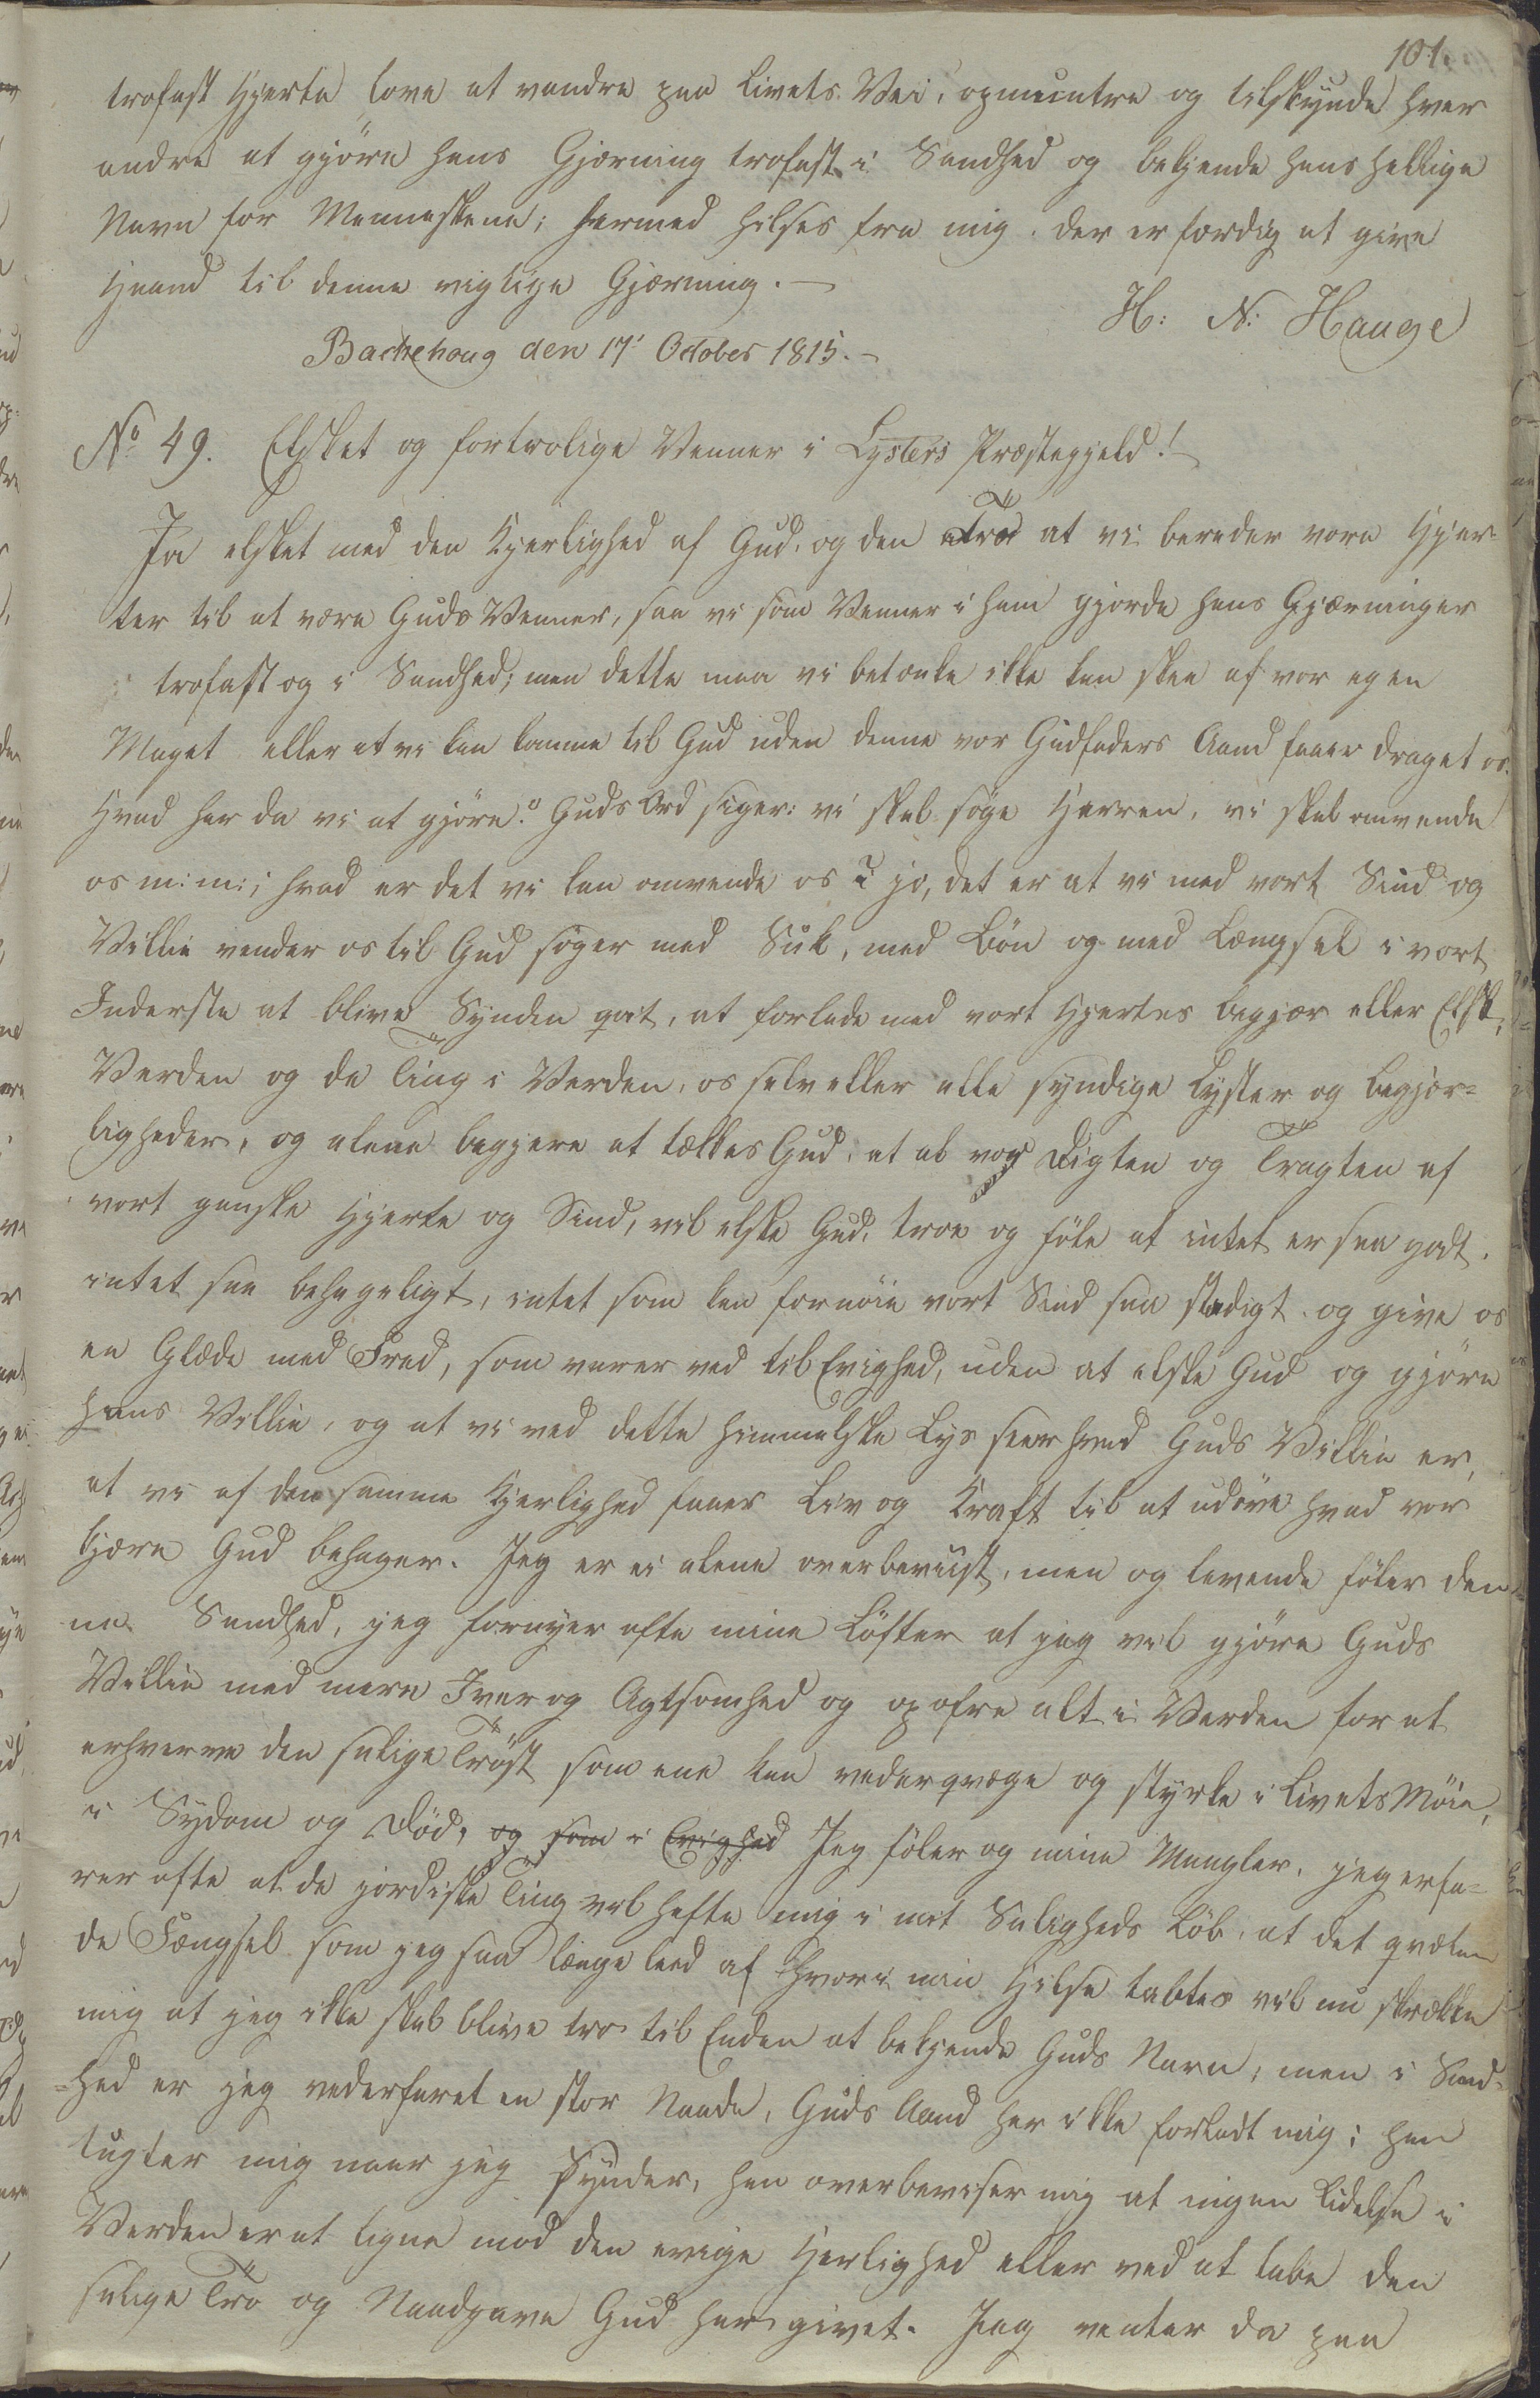 101.
trofast Hjerte love at vandre paa Livets Vei, opmuntre og tilskynde hver
andre at gjöre hans Gjærning trofast i Sandhed og bekjende hans hellige
Navn for Menneskene; hermed hilses fra mig. der er færdig at give
Haand til denne vigtige Gjærning. —
H: N: Hauge
Backehaug den 17' October 1815. —
No 49. Elsket og fortrolige Venner i Lysters Præstegjeld! —
Ja elsket med den Kjerlighed af Gud, og den Tro at vi bereder vore Hjer-
ter til at være Guds Venner, saa vi som Venner i ham gjorde hans Gjærninger
trofast og i Sandhed; men dette maa vi betænke ikke kan skee af vor egen
Magt eller at vi kan komme til Gud uden denne vor Gudfaders Aand faaer draget os.
Hvad har da vi at gjöre? Guds Ord siger: vi skal söge Herren, vi skal omvende
os m: m:; hvad er det vi kan omvende os? jo, det er at vi med vort Sind og
Villie vender os til Gud söger med Suk, med Bön og med Længsel i vort
Inderste at blive Synden qvit, at forlade med vort Hjertes Begjær eller Elsk,
Verden og de Ting i Verden, os selv eller alle syndige Lyster og Begjær-
ligheder, og alene begjere at tækkes Gud, at al vor Digten og Tragten af
vort ganske Hjerte og Sind, vil elske Gud, troe og föle at intet er saa godt.
intet saa behageligt, intet som kan fornöie vort Sind saa stadigt og give os
en Glæde med Fred, som varer ved til Evighed, uden at elske Gud og gjöre
hans Villie, og at vi ved dette himmelske Lys seer hvad Guds Villie er,
at vi af den samme Kjerlighed faaer Liv og Kraft til at udöve hvad vor
kjære Gud behager. Jeg er ei alene overbeviist, men og levende föler den-
ne Sandhed, jeg fornyer ofte mine Löfter at jeg vil gjöre Guds
Villie med mere Iver og Agtsomhed og opofre alt i Verden for at
erhverve den salige Tröst som ene kan vederqvæge og styrke i Livets Möie,
i Sydom og Död, og som i Evighed Jeg föler og mine Mangler, jeg erfa-
rer ofte at de jordiske Ting vil hefte mig i mit Saligheds Löb, at det qvælen
de Fængsel som jeg saa længe leed af hvori min Helse tabtes vil nu skrække
mig at jeg ikke skal blive tro til Enden at bekjende Guds Navn, men i Sand-
hed er jeg vederfaret en stor Naade, Guds Aand har ikke forladt mig; han
tugter mig naar jeg Synder, han overbeviser mig at ingen Lidelse i
Verden er at ligne mod den evige Herlighed eller ved at tabe den
salige Tro og Naadgave Gud har givet. Jeg venter da paa